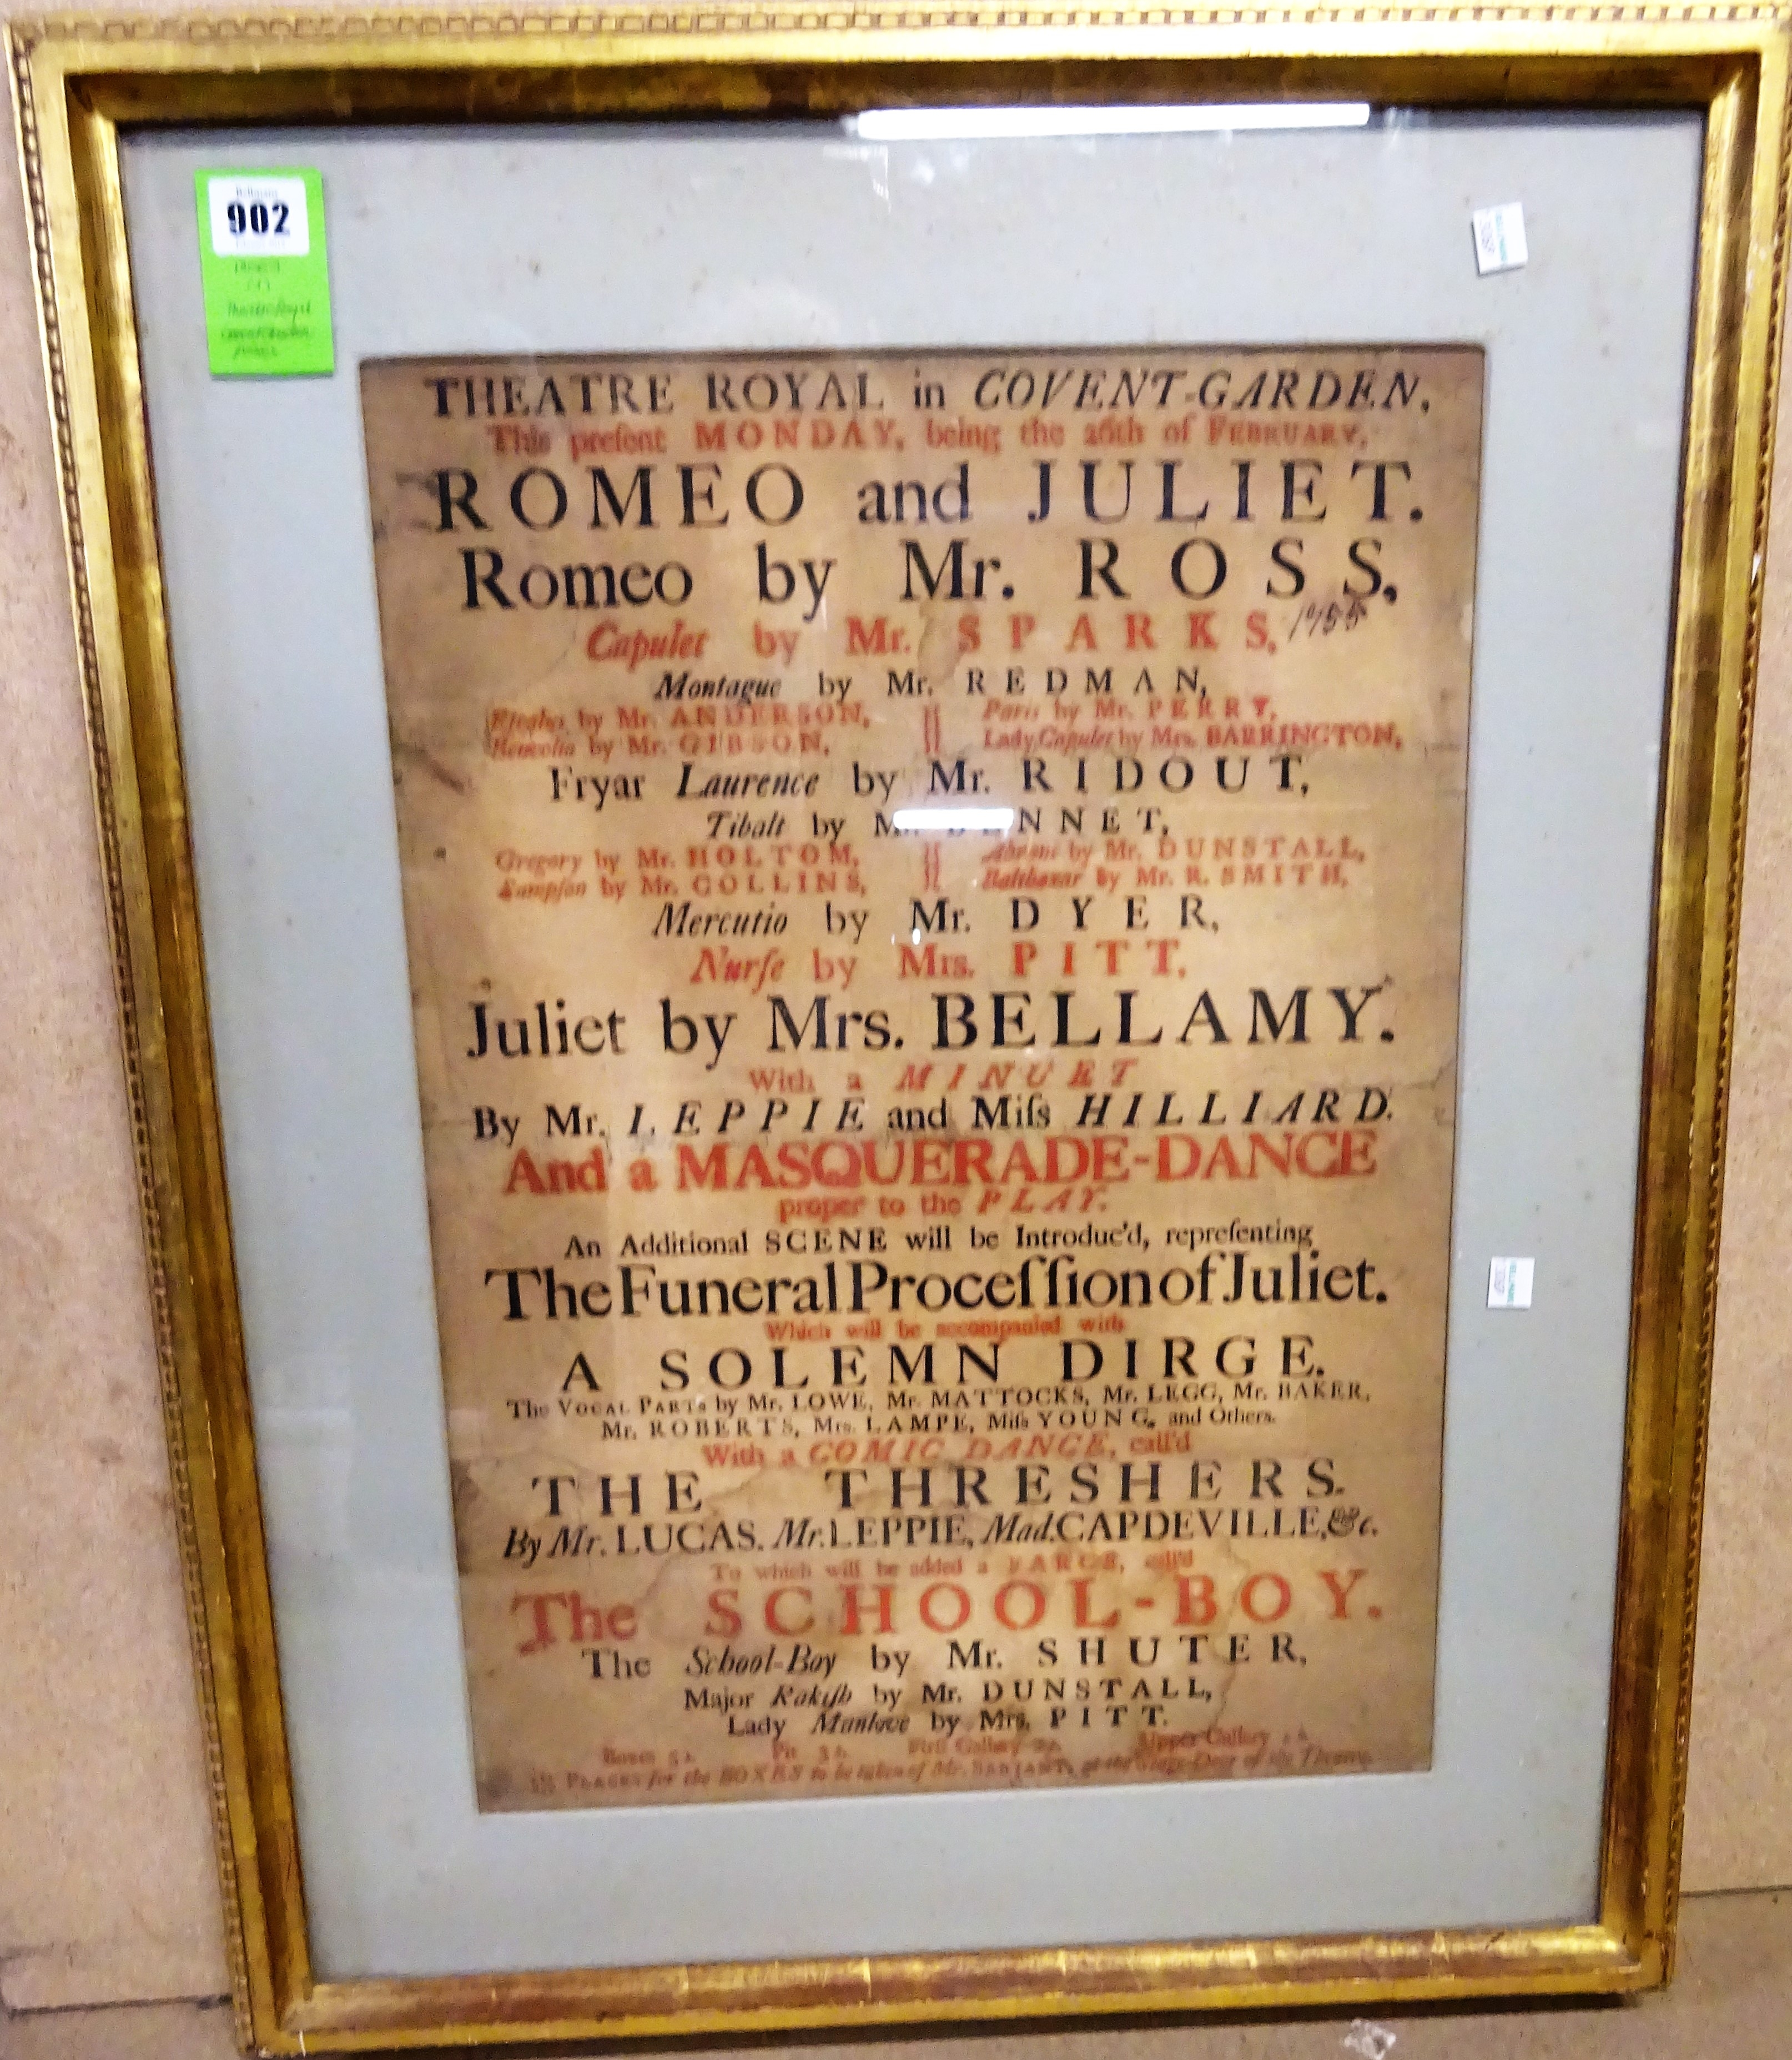 902
THEATRE ROYAL in COVENT-GARDEN,
This preſent MONDAY, being the 26th of FEBRUARY,
ROMEO and JULIET.
Romeo by Mr. ROSS,
Capulet by Mr. SPARKS, 1755
Montague by Mr. REDMAN,
by Mr. ANDERSON, Paris by Mr. PERRY,
Benvolio by Mr. GIBSON, Lady Capulet by Mrs. BARRINGTON,
Fryar Laurence by Mr. RIDOUT,
Tibalt by NNET,
Gregory by Mr. HOLTOM, by Mr. DUNSTALL,
Sampſon by Mr. COLLINS, Balthazar by Mr. R. SMITH,
Mercutio by Mr. DYER,
Nurſe by Mrs. PITT,
Juliet by Mrs. BELLAMY.
With a MINUET
By Mr. LEPPIE and Miſs HILLIARD.
And a MASQUERADE-DANCE
proper to the PLAY.
An Additional SCENE will be Introduc'd, repreſenting
The Funeral Proceſſion of Juliet.
Which will be accompanied with
A SOLEMN DIRGE.
The VOCAL PARTS by Mr. LOWE, Mr. MATTOCKS, Mr. LEGG, Mr. BAKER,
Mr. ROBERTS, Mrs. LAMPE, Miſs YOUNG, and Others.
With a COMIC DANCE, call'd
THE THRESHERS.
By Mr. LUCAS, Mr. LEPPIE, Mad. CAPDEVILLE, &c.
To which will be added a FARCE, call'd
The SCHOOL-BOY.
The School-Boy by Mr. SHUTER,
Major Rakiſh by Mr. DUNSTALL,
Lady Manlove by Mrs. PITT.
Boxes 5s. Pit 3s. Firſt Gallery 2s. Upper Gallery 1s.
PLACES for the BOXES to be taken of Mr. at the Stage-Door of the Theatre.